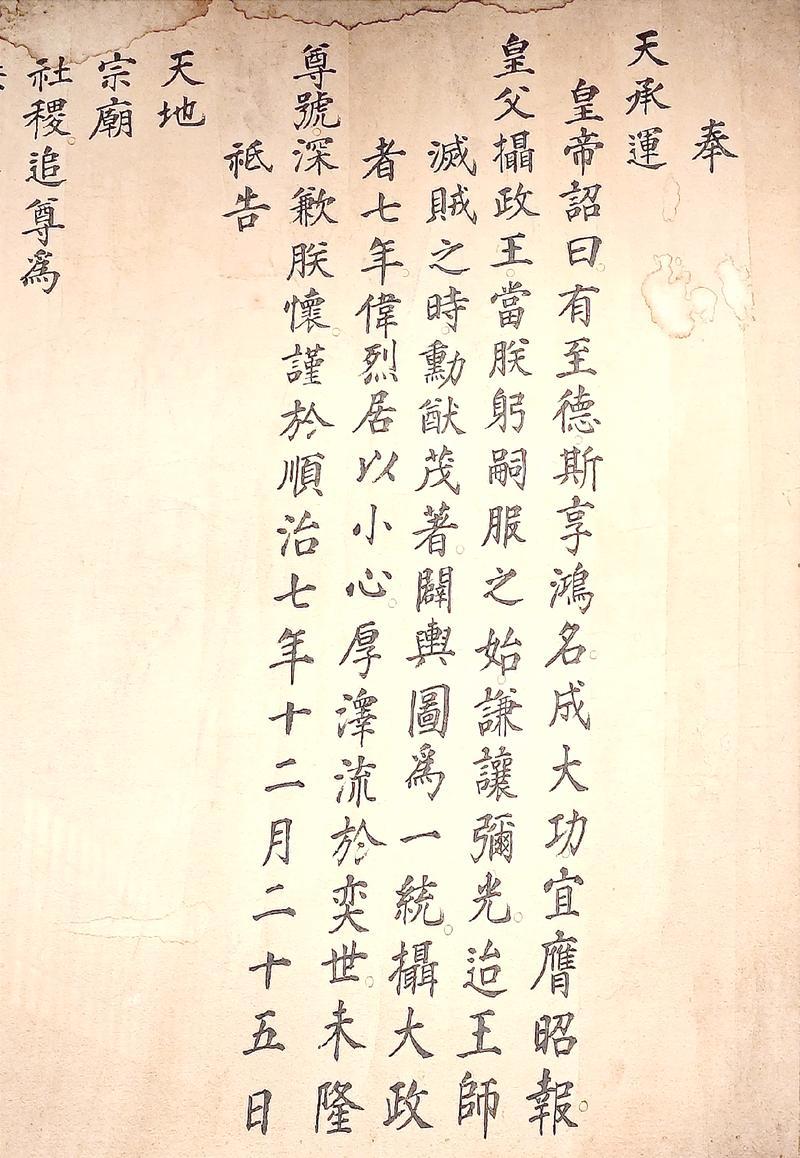 奉
天承運
皇帝詔曰。有至德斯享鴻名。成大功宜膺昭報。
皇父攝政王。當朕躬嗣服之始。謙讓彌光。迨王師
滅賊之時。勳猷茂著。闢輿圖為一統。攝大政
者七年。偉烈居以小心。厚澤流於奕世。未隆
尊號。深歉朕懷。謹於順治七年十二月二十五日
祗告
天地
宗廟
社稷。追尊為